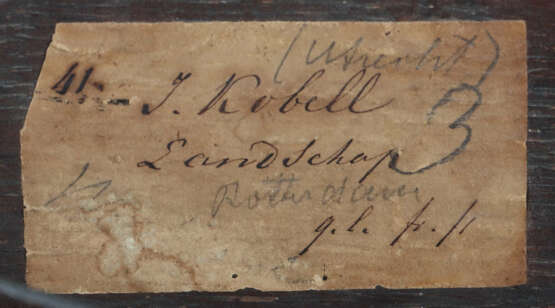 (Utrecht)
41.
J. Kobell
3
Landschap
Rotterdam
g.l.